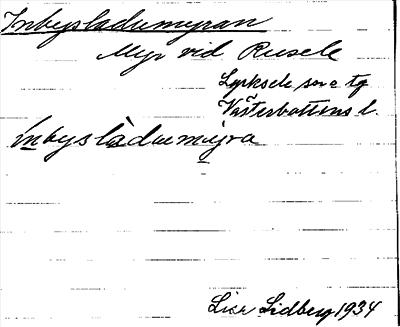 Inbysladumyran
Myr vid Rusele
Lycksele sn o tg
Västerbottens l.
Inbysladumyra
Lidberg 1934